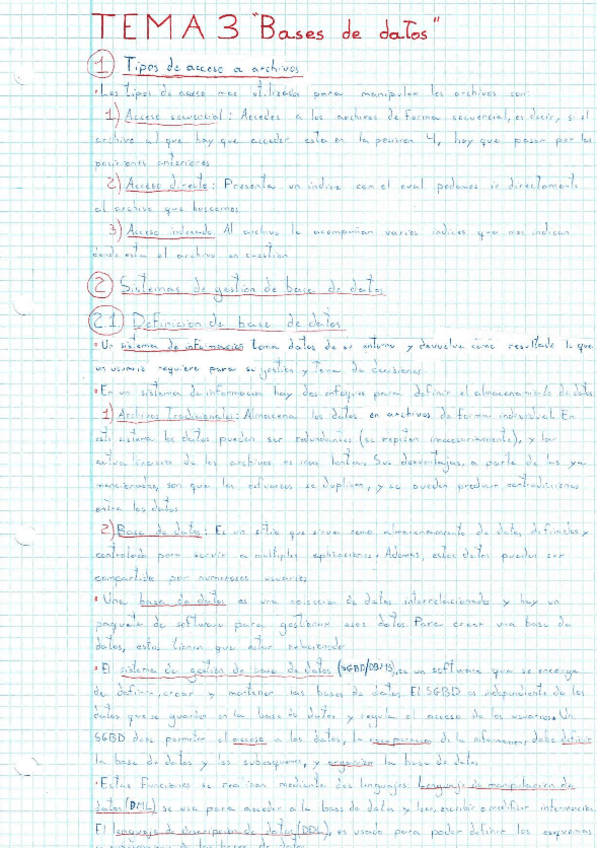 TEMA 3 "Bases de datos"
1 Tipos de acceso a archivos
• Los tipos de acceso mas utilizados para manipular los archivos son:
1) Acceso secuencial: Accedes a los archivos de forma secuencial, es decir, si el
archivo al que hay que acceder esta en la posicion 4, hay que pasar por las
posiciones anteriores
2) Acceso directo: Presenta un indice con el cual podemos ir directamente
al archivo que buscamos
3) Acceso indexado: Al archivo le acompañan varios indices que nos indican
donde esta el archivo en cuestion
2 Sistemas de gestión de base de datos
2.1 Definicion de base de datos
• Un sistema de información toma datos de su entorno y devuelve como resultado lo que
un usuario requiere para su gestion y toma de decisiones
• En un sistema de informacion hay dos enfoques para definir el almacenamiento de datos
1) Archivos Tradicionales: Almacena los datos en archivos de forma individual. En
este sistema los datos pueden ser redundantes (se repiten innecesariamente), y la
de los archivos es mas lenta. Sus desventajas, a parte de las ya
mencionadas, son que los esfuerzos se duplican, y se pueden producir contradicciones
entre los datos
2) Base de datos: Es un sitio que sirve como almacenamiento de datos, definidos y
controlado para servir a multiples aplicaciones. Ademas, estos datos pueden ser
compartidos por numerosos usuarios
• Una base de datos es una coleccion de datos interrelacionados y hay un
paquete de software para gestionar esos datos. Para crear una base de
datos, estos tienen que estar
• El sistema de gestión de base de datos (SGBD/DBMS), es un software que se encarga
de definir, crear y mantener las bases de datos. El SGBD es independiente de los
datos que se guardan en la base de datos y regula el acceso de los usuarios. Un
SGBD debe permitir el acceso a los datos, la de la informacion, debe definir
la base de datos y los subesquemas, y organizar la base de datos.
• Estas funciones se realizan mediante dos lenguajes. Lenguaje de manipulación de
datos (DML) se usa para acceder a la base de datos y leer, escribir o modificar informacion.
El lenguaje de descripcion de datos (DDL), es usado para poder definir los esquemas
de las bases de datos